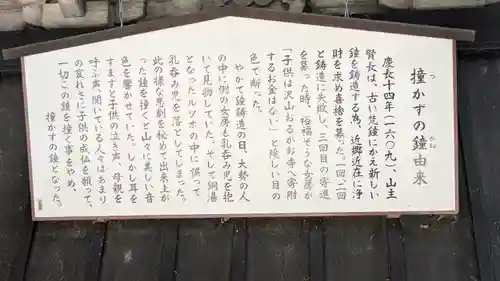 撞かずの鐘由来
つ　かね
慶長十四年(一六〇九)、山主
賢長は、古い梵鐘にかえ新しい
鐘を鋳造する為、近郷近在に浄
財を求め喜捨を募った。一回、二回
と鋳造に失敗し、三回目の寄進
を募った時、裕福そうな女房が
「子供は沢山おるがお寺へ寄附
するお金はない」と険しい目の
色で断った。
やがて鐘鋳造の日、大勢の人
の中に例の女房も乳呑み児を抱
いて見物していた。そして銅湯
となったルツボの中に誤って
乳呑み児を落としてしまった。
此の様な悲劇を秘めて出来上が
った鐘を撞くと山々に美しい音
色を響かせていた。しかし耳を
すますと子供の泣き声、母親を
呼ぶ声、聞いている人々はあまり
の哀れさに子供の成仏を願って、
一切この鐘を撞く事をやめ、
撞かずの鐘となった。